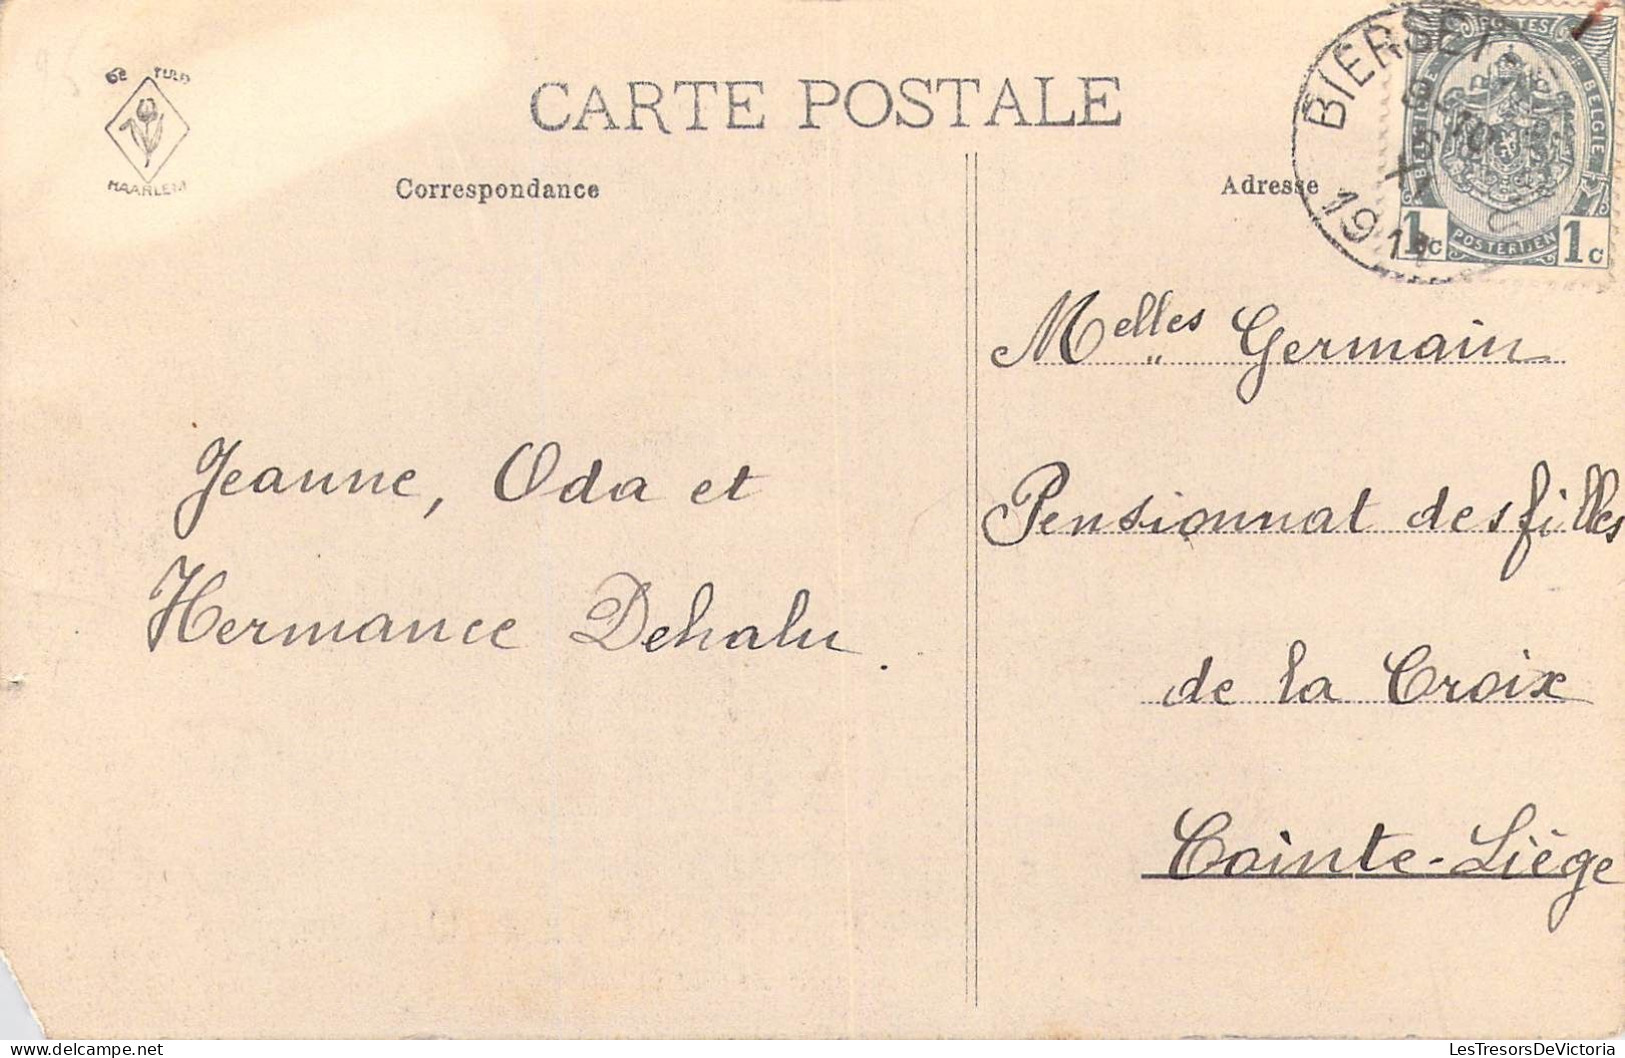 Gé TULP
HAARLEM
CARTE POSTALE
Correspondance
Adresse
BIERSET
1911
POSTES
BELGIQUE
BELGIE
POSTERIJEN
1c 1c
Melles Germain
Pensionnat des filles
de la Croix
Cointe-Liège
Jeanne, Oda et
Hermance Dehalu.
LesTresorsDeVictoria